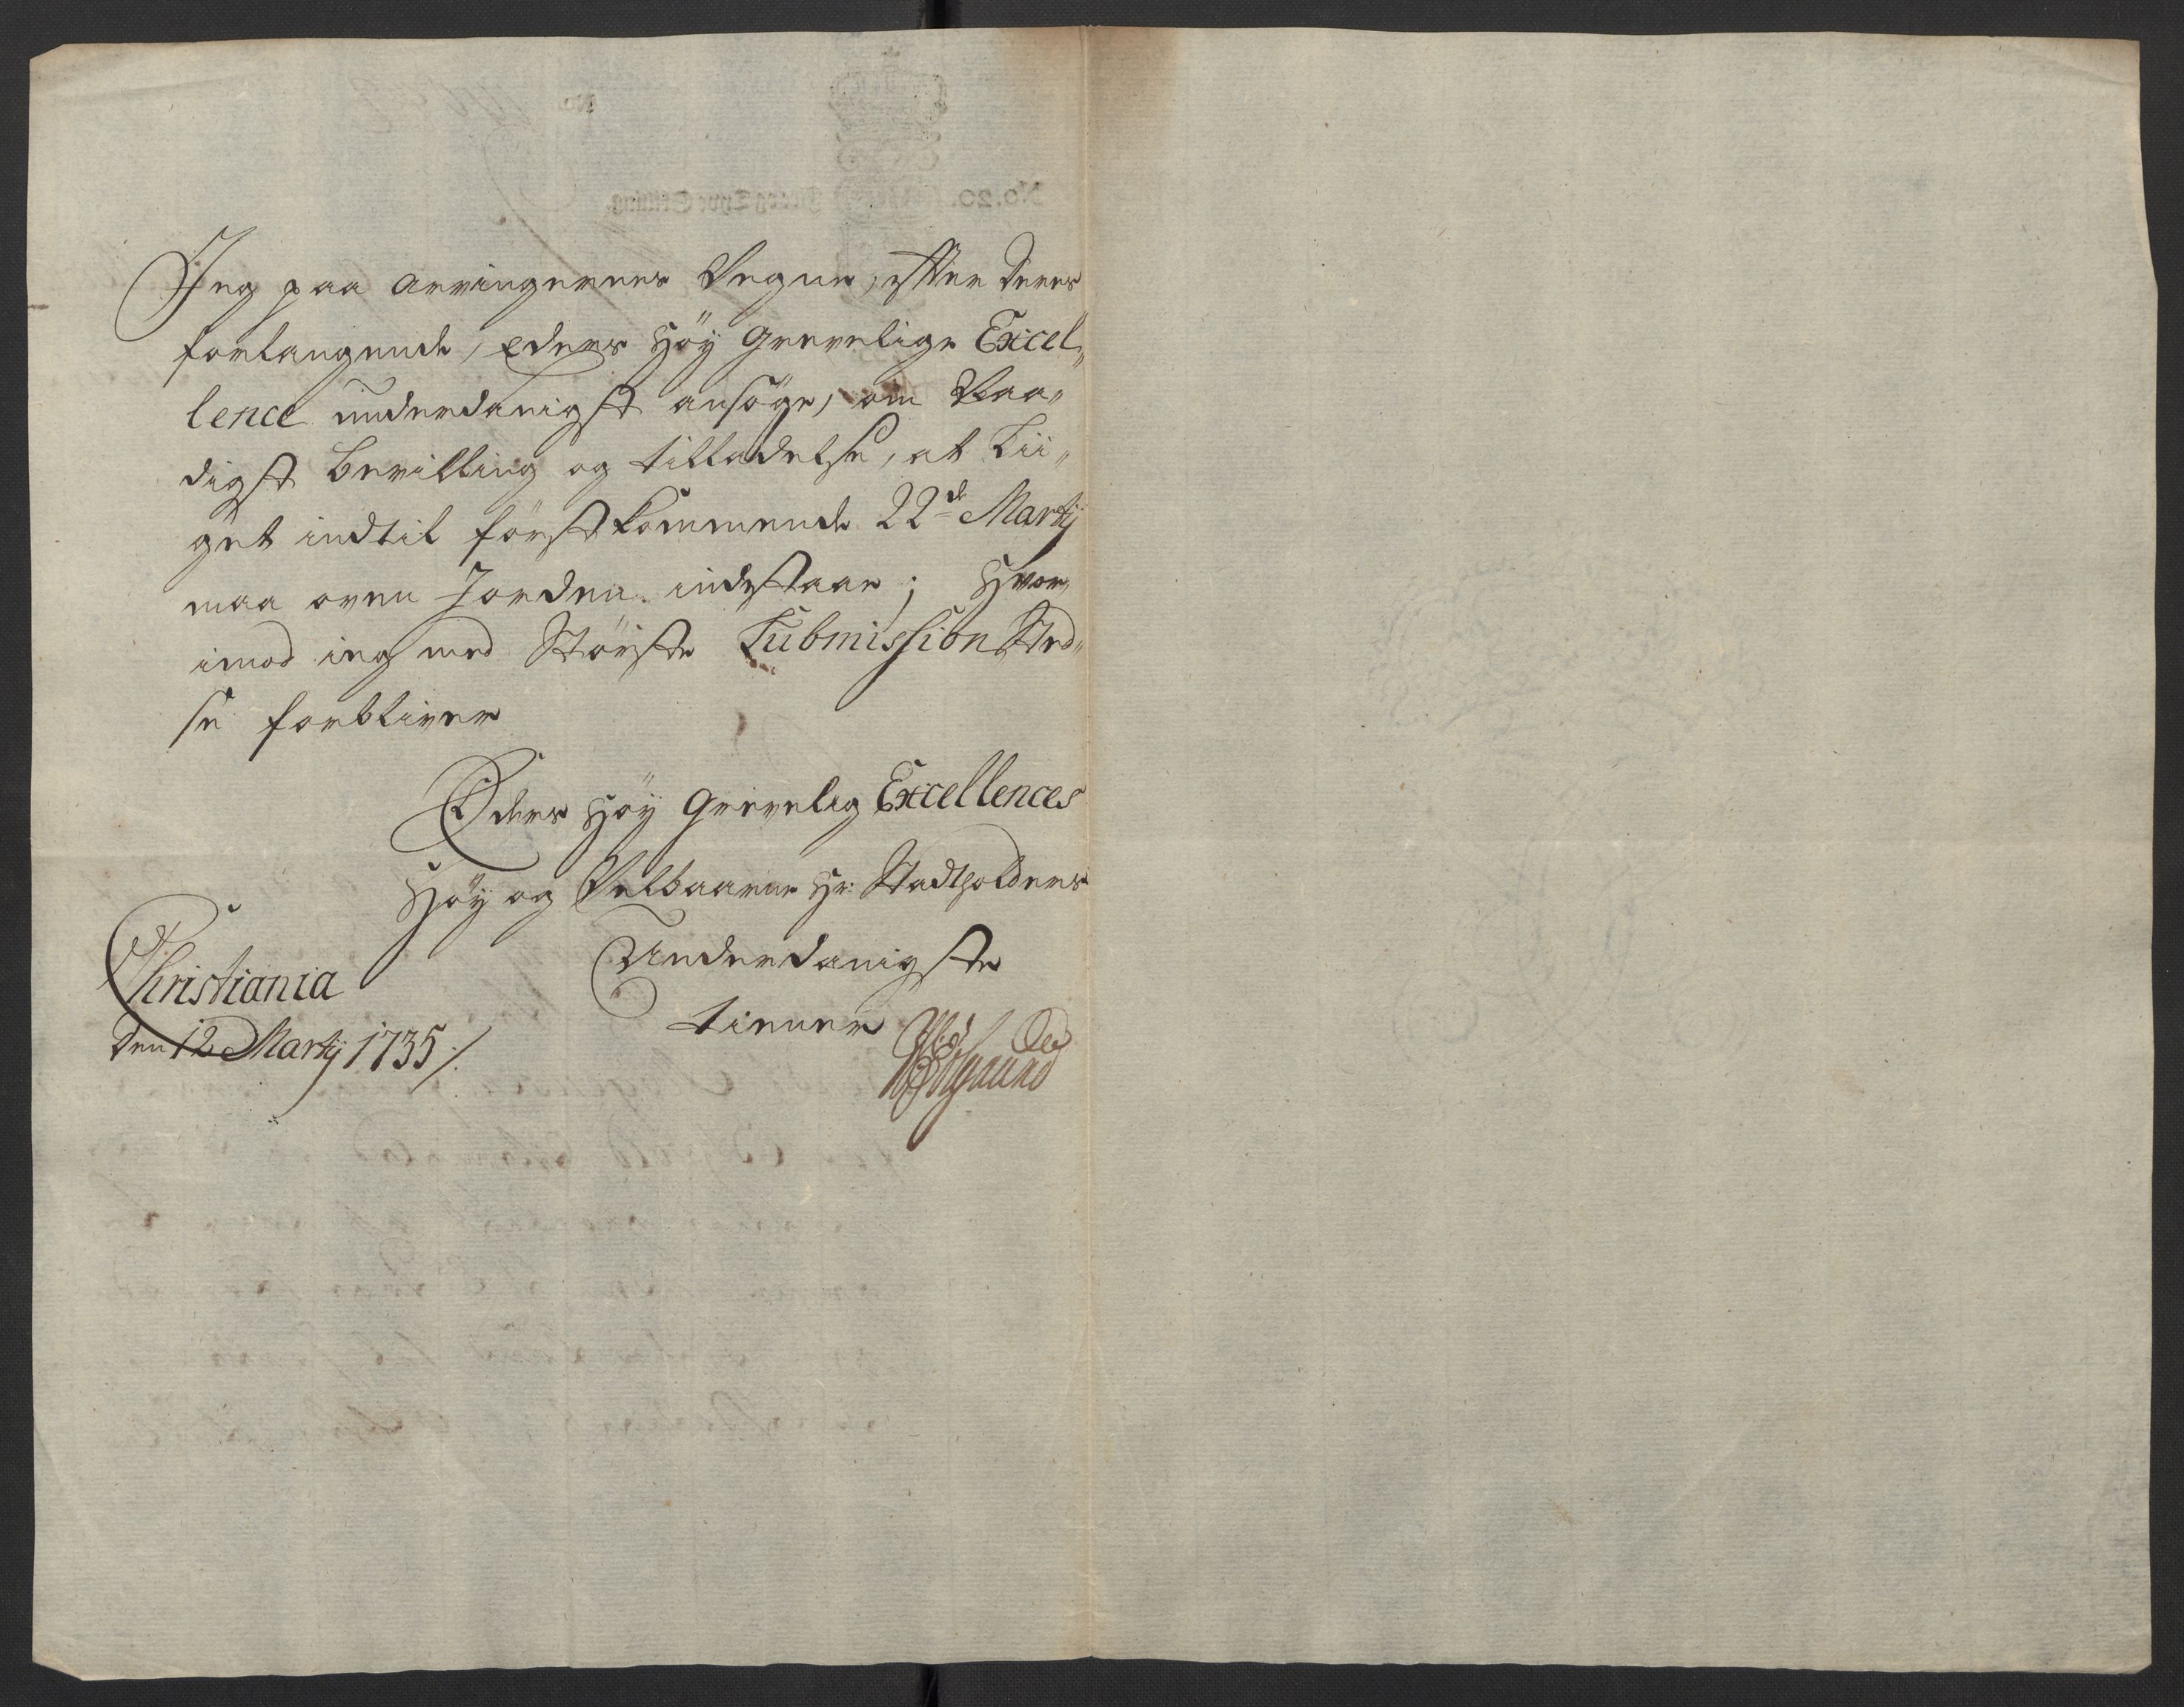 Jeg paa arvingernes Vegne, efter deres
forlangende, Eders Høÿ Grevelige Excel„
lence underdanigst ansøge, om Naa„
digst bevilling og tilladelse, at Lii„
get indtil førstkommende 22de Martÿ
maa oven Jorden indestaae; Hvor„
imod ieg med Største Submission Sted„
se forbliver
Eders Høÿ Grevelig Excellences
Høÿ og Velbaarne Hr: Stadtholders
Underdanigste
tiener
Christiania
den 12 Martÿ 1735 /.
No. 20.